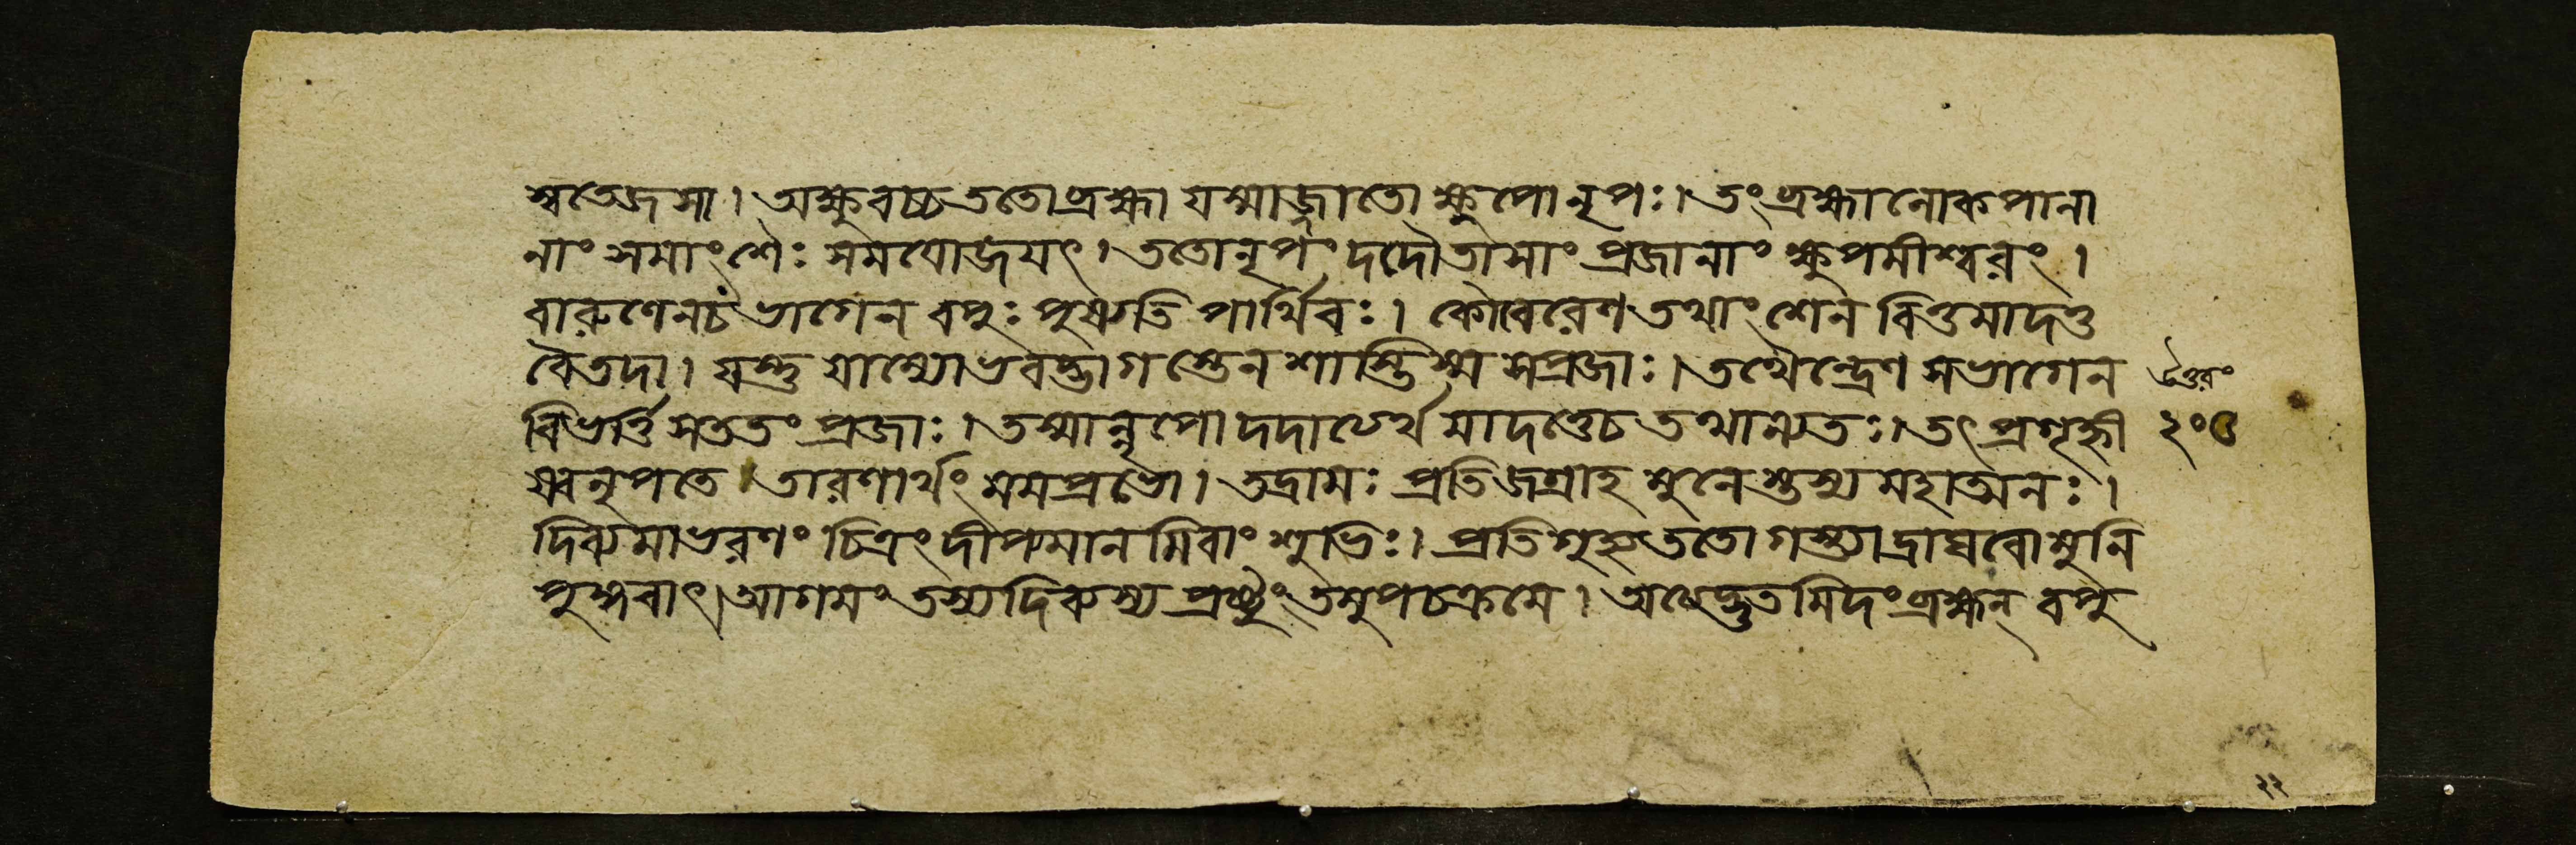 স্বতেজসা। অক্ষুবচ্চততোব্রহ্মা যস্মাজ্জাতো ক্ষুপোনৃপঃ। তংব্রহ্মালোকপালা
নাং সমাংশৈঃ সমযোজয়ৎ। ততোনৃপং দদৌতাসাং প্রজানাং ক্ষুপমীশ্বরং।
বারুণেনচ ভাগেন বপুঃ পুষ্যতি পার্থিবঃ। কৌবেরেণ তথাংশেন বিত্তমাদত্ত
বৈতদা। যস্তু যাম্যোভবদ্ভাগস্তেন শাস্তিস্ম সপ্রজাঃ। তথৈন্দ্রেণ সভাগেন
বিভর্ত্তি সততং প্রজাঃ। তস্মান্নৃপো দদাত্যর্থমাদত্তেচ তথান্যতঃ। তৎ প্রগৃহ্নী
ষ্বনৃপতে তারণার্থং মমপ্রভো। তদ্রামঃ প্রতিজগ্রাহ মুনেস্তস্য মহাত্মনঃ।
দিব্যমাভরণং চিত্রং দীপ্যমানমিবাংশুভিঃ। প্রতিগৃহ্য ততোগস্ত্যাদ্রাঘবো মুনি
পুঙ্গবাৎ। আগমং তস্যদিব্যস্য প্রষ্টুং তমুপচক্রমে। অত্যদ্ভুতমিদং ব্রহ্মন্ বপু
উত্তরং
২০৫
২২